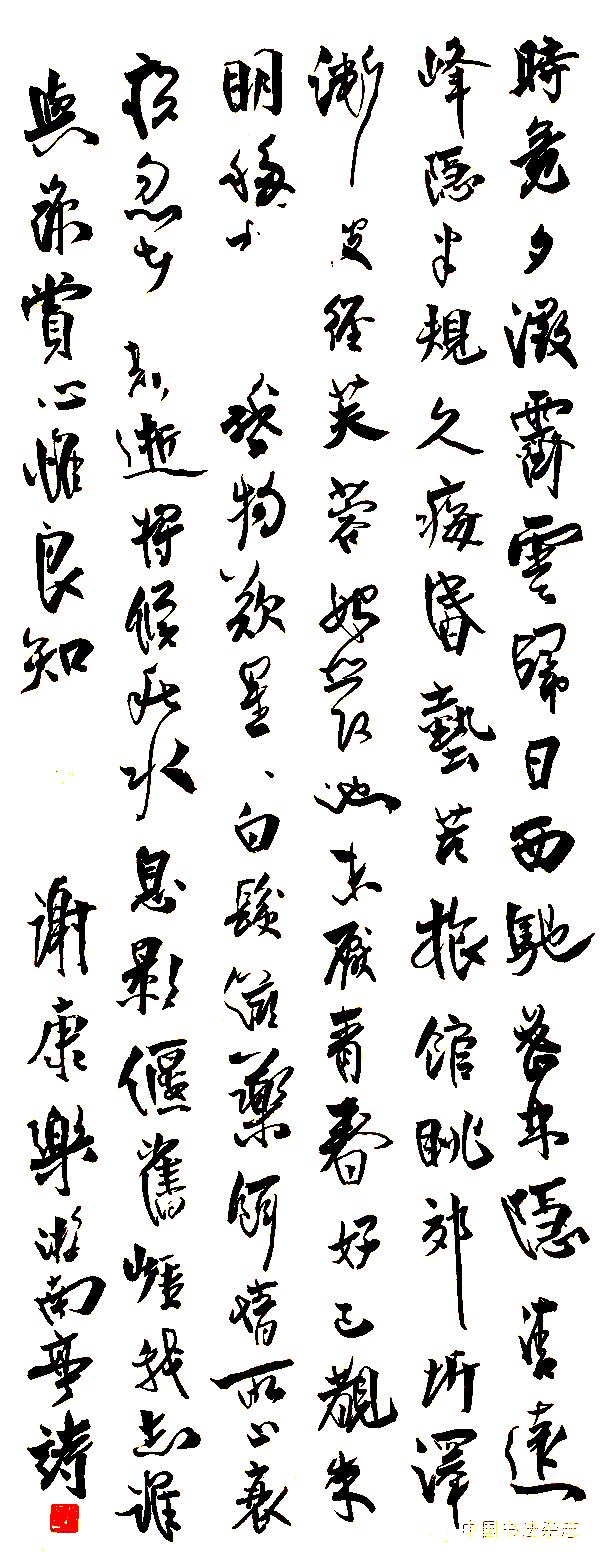 時竟夕澂霽雲歸日西馳密林隱清遠
峰隱半規久痗昏墊苦旅館眺郊圻澤
漸被徑芙蓉始發池未厭青春好已觀朱
明移感物歎星、白髮垂藥餌情所止衰
疾忽在斯逝將候秋水息影偃舊崖我志誰
與諒賞心惟良知 谢康樂游南亭詩
中国书法杂志